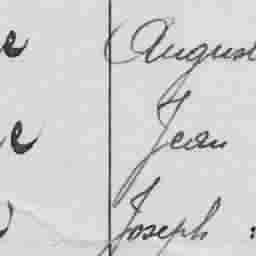 e August
e Jean
Joseph :